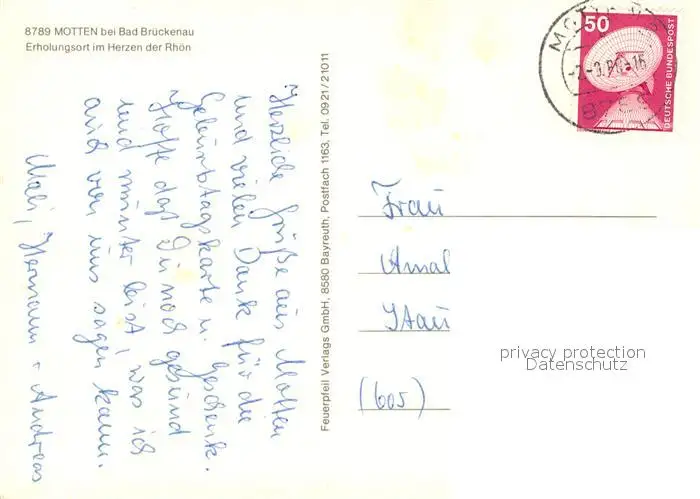 8789 MOTTEN bei Bad Brückenau
Erholungsort im Herzen der Rhön
50
DEUTSCHE BUNDESPOST
Herzliche Grüße aus Motten
und vielen Dank für die
Geburtstagskarte u. Geschenk.
Hoffe daß Du noch gesund
und munter bist, was ich
auch von uns sagen kann.
Mali, Hermann + Andreas
Feuerpfeil Verlags GmbH, 8580 Bayreuth, Postfach 1163, Tel. 0921/21011
Frau
Amal
Itau
(605)
privacy protection
Datenschutz